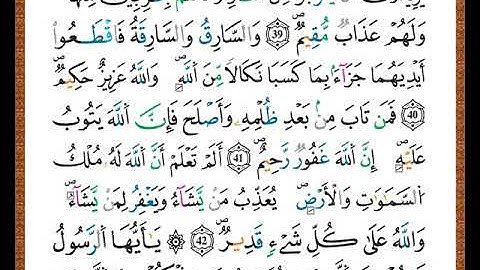 وَلَهُمْ عَذَابٌ مُّقِيمٌ 39 وَالسَّارِقُ وَالسَّارِقَةُ فَاقْطَعُوا
أَيْدِيَهُمَا جَزَآءً بِمَا كَسَبَا نَكَالًا مِّنَ اللَّهِ وَاللَّهُ عَزِيزٌ حَكِيمٌ
40 فَمَن تَابَ مِنۢ بَعْدِ ظُلْمِهِۦ وَأَصْلَحَ فَإِنَّ اللَّهَ يَتُوبُ
عَلَيْهِ إِنَّ اللَّهَ غَفُورٌ رَّحِيمٌ 41 أَلَمْ تَعْلَمْ أَنَّ اللَّهَ لَهُۥ مُلْكُ
السَّمَـٰوَٰتِ وَالْأَرْضِ يُعَذِّبُ مَن يَّشَآءُ وَيَغْفِرُ لِمَن يَّشَآءُ
وَاللَّهُ عَلَىٰ كُلِّ شَىْءٍ قَدِيرٌ 42 ۞ يَـٰٓأَيُّهَا الرَّسُولُ